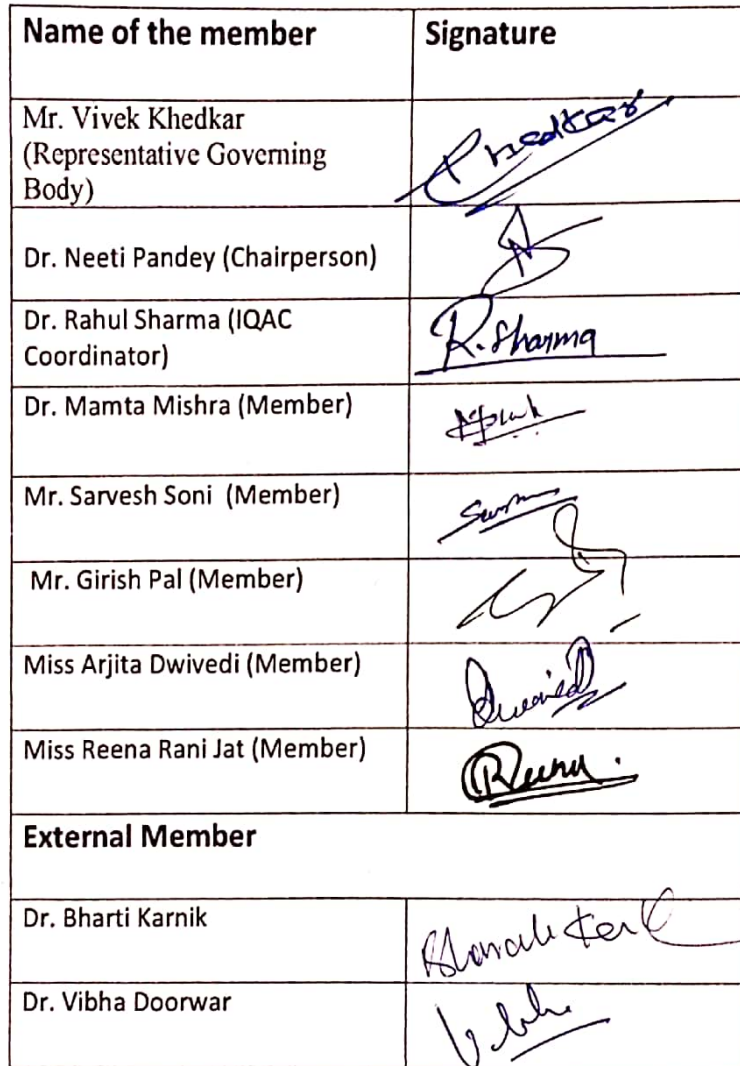 Name of the member Signature
Mr. Vivek Khedkar
(Representative Governing
Body)
Khedkar
Dr. Neeti Pandey (Chairperson)
Dr. Rahul Sharma (IQAC
Coordinator)
R. Sharma
Dr. Mamta Mishra (Member)
Mr. Sarvesh Soni (Member)
Mr. Girish Pal (Member)
Miss Arjita Dwivedi (Member)
Miss Reena Rani Jat (Member)
External Member
Dr. Bharti Karnik
Dr. Vibha Doorwar